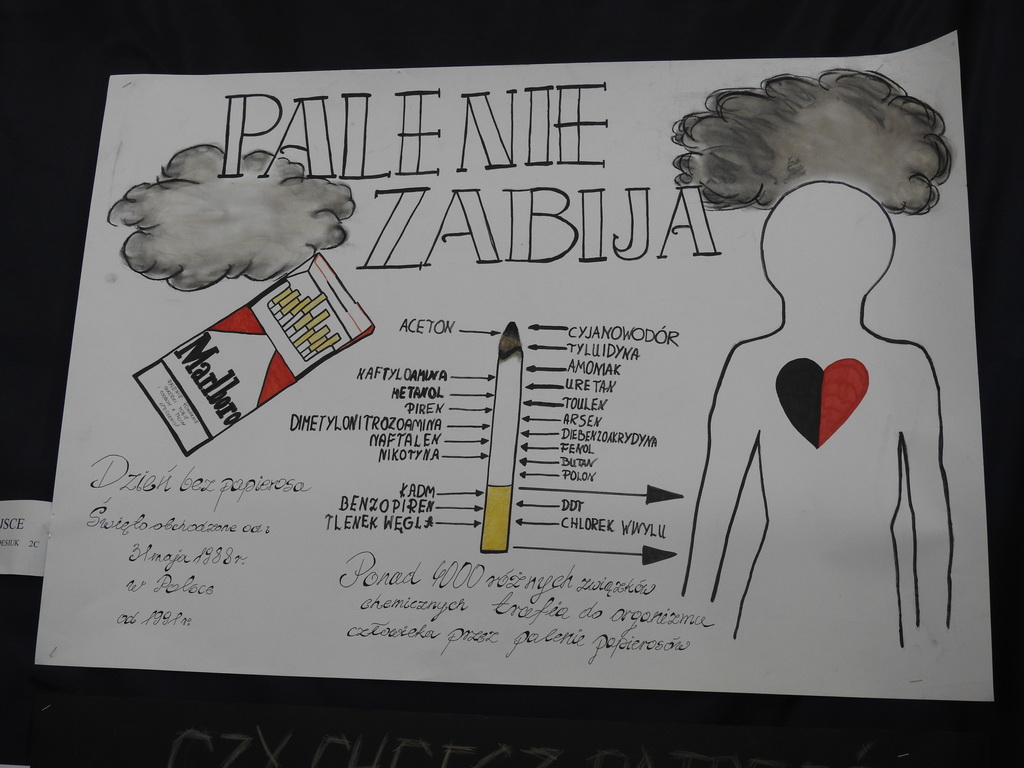 PALENIE
ZABIJA
Marlboro
ACETON
NAFTYLOAMINA
METANOL
PIREN
DIMETYLONITROZOAMINA
NAFTALEN
NIKOTYNA
KADM
BENZOPIREN
TLENEK WĘGLA
CYJANOWODÓR
TYLUIDYNA
AMONIAK
URETAN
TOULEN
ARSEN
DIBENZOAKRYDYNA
FENOL
BUTAN
POLON
DDT
CHLOREK WINYLU
Dzień bez papierosa
Święto obchodzone od:
31 maja 1988r.
w Polsce
od 1991r.
Ponad 4000 różnych związków
chemicznych trafia do organizmu
człowieka przez palenie papierosów
JSCE
ESIUK 2C
CZY CHCESZ